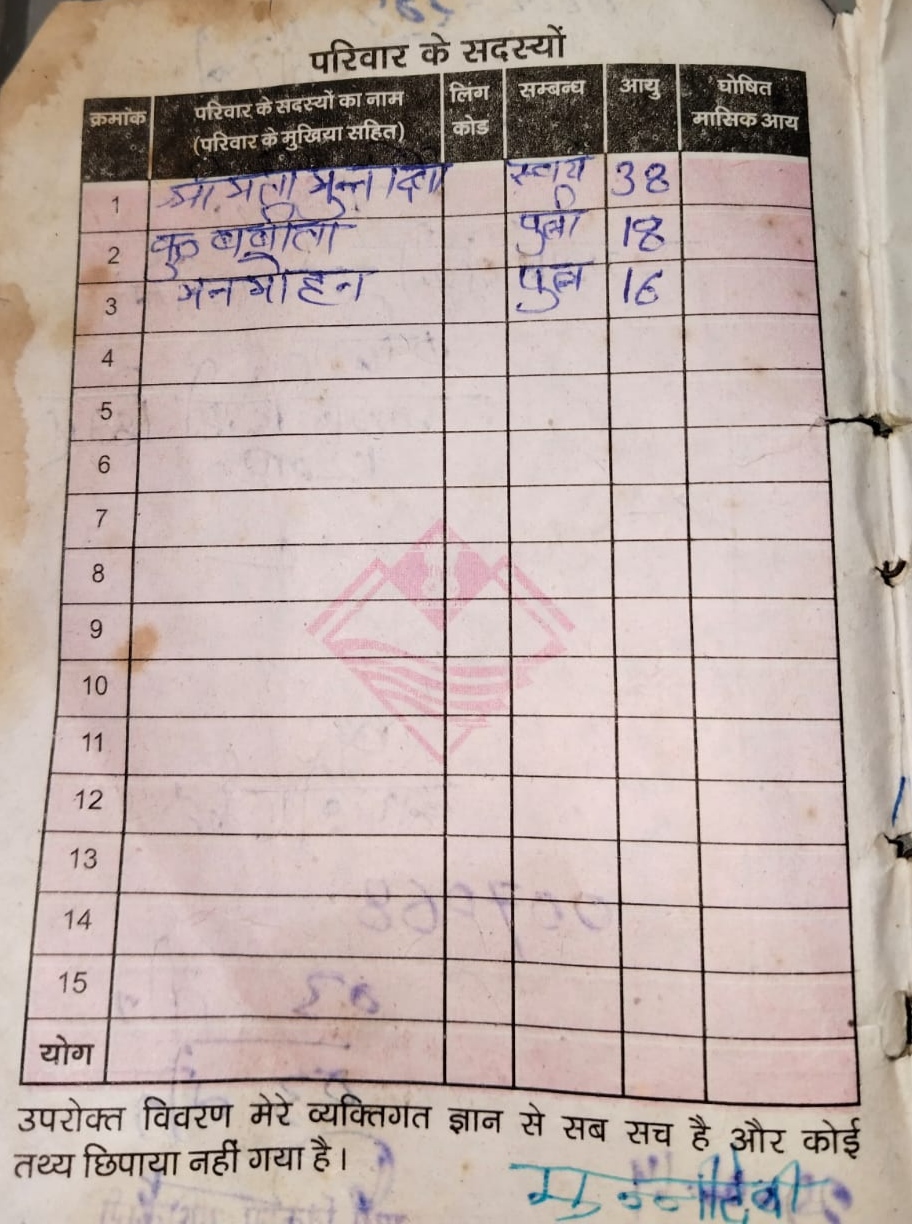 परिवार के सदस्यों
क्रमांक परिवार के सदस्यों का नाम (परिवार के मुखिया सहित) लिंग कोड सम्बन्ध आयु घोषित मासिक आय
1 स्वयं 38
2 कु० पुत्री 18
3 मनमोहन पुत्र 16
4
5
6
7
8
9
10
11
12
13
14
15
योग
उपरोक्त विवरण मेरे व्यक्तिगत ज्ञान से सब सच है और कोई
तथ्य छिपाया नहीं गया है।
मुन्नीदेवी